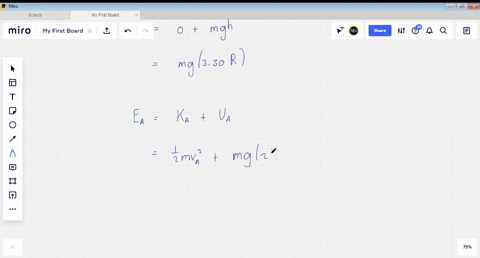 Miro
Boards
My First Board
miro
My First Board
Share
= 0 + mgh
= mg(3.50 R)
E_A = K_A + U_A
= 1/2 mv_A^2 + mg(2
75%